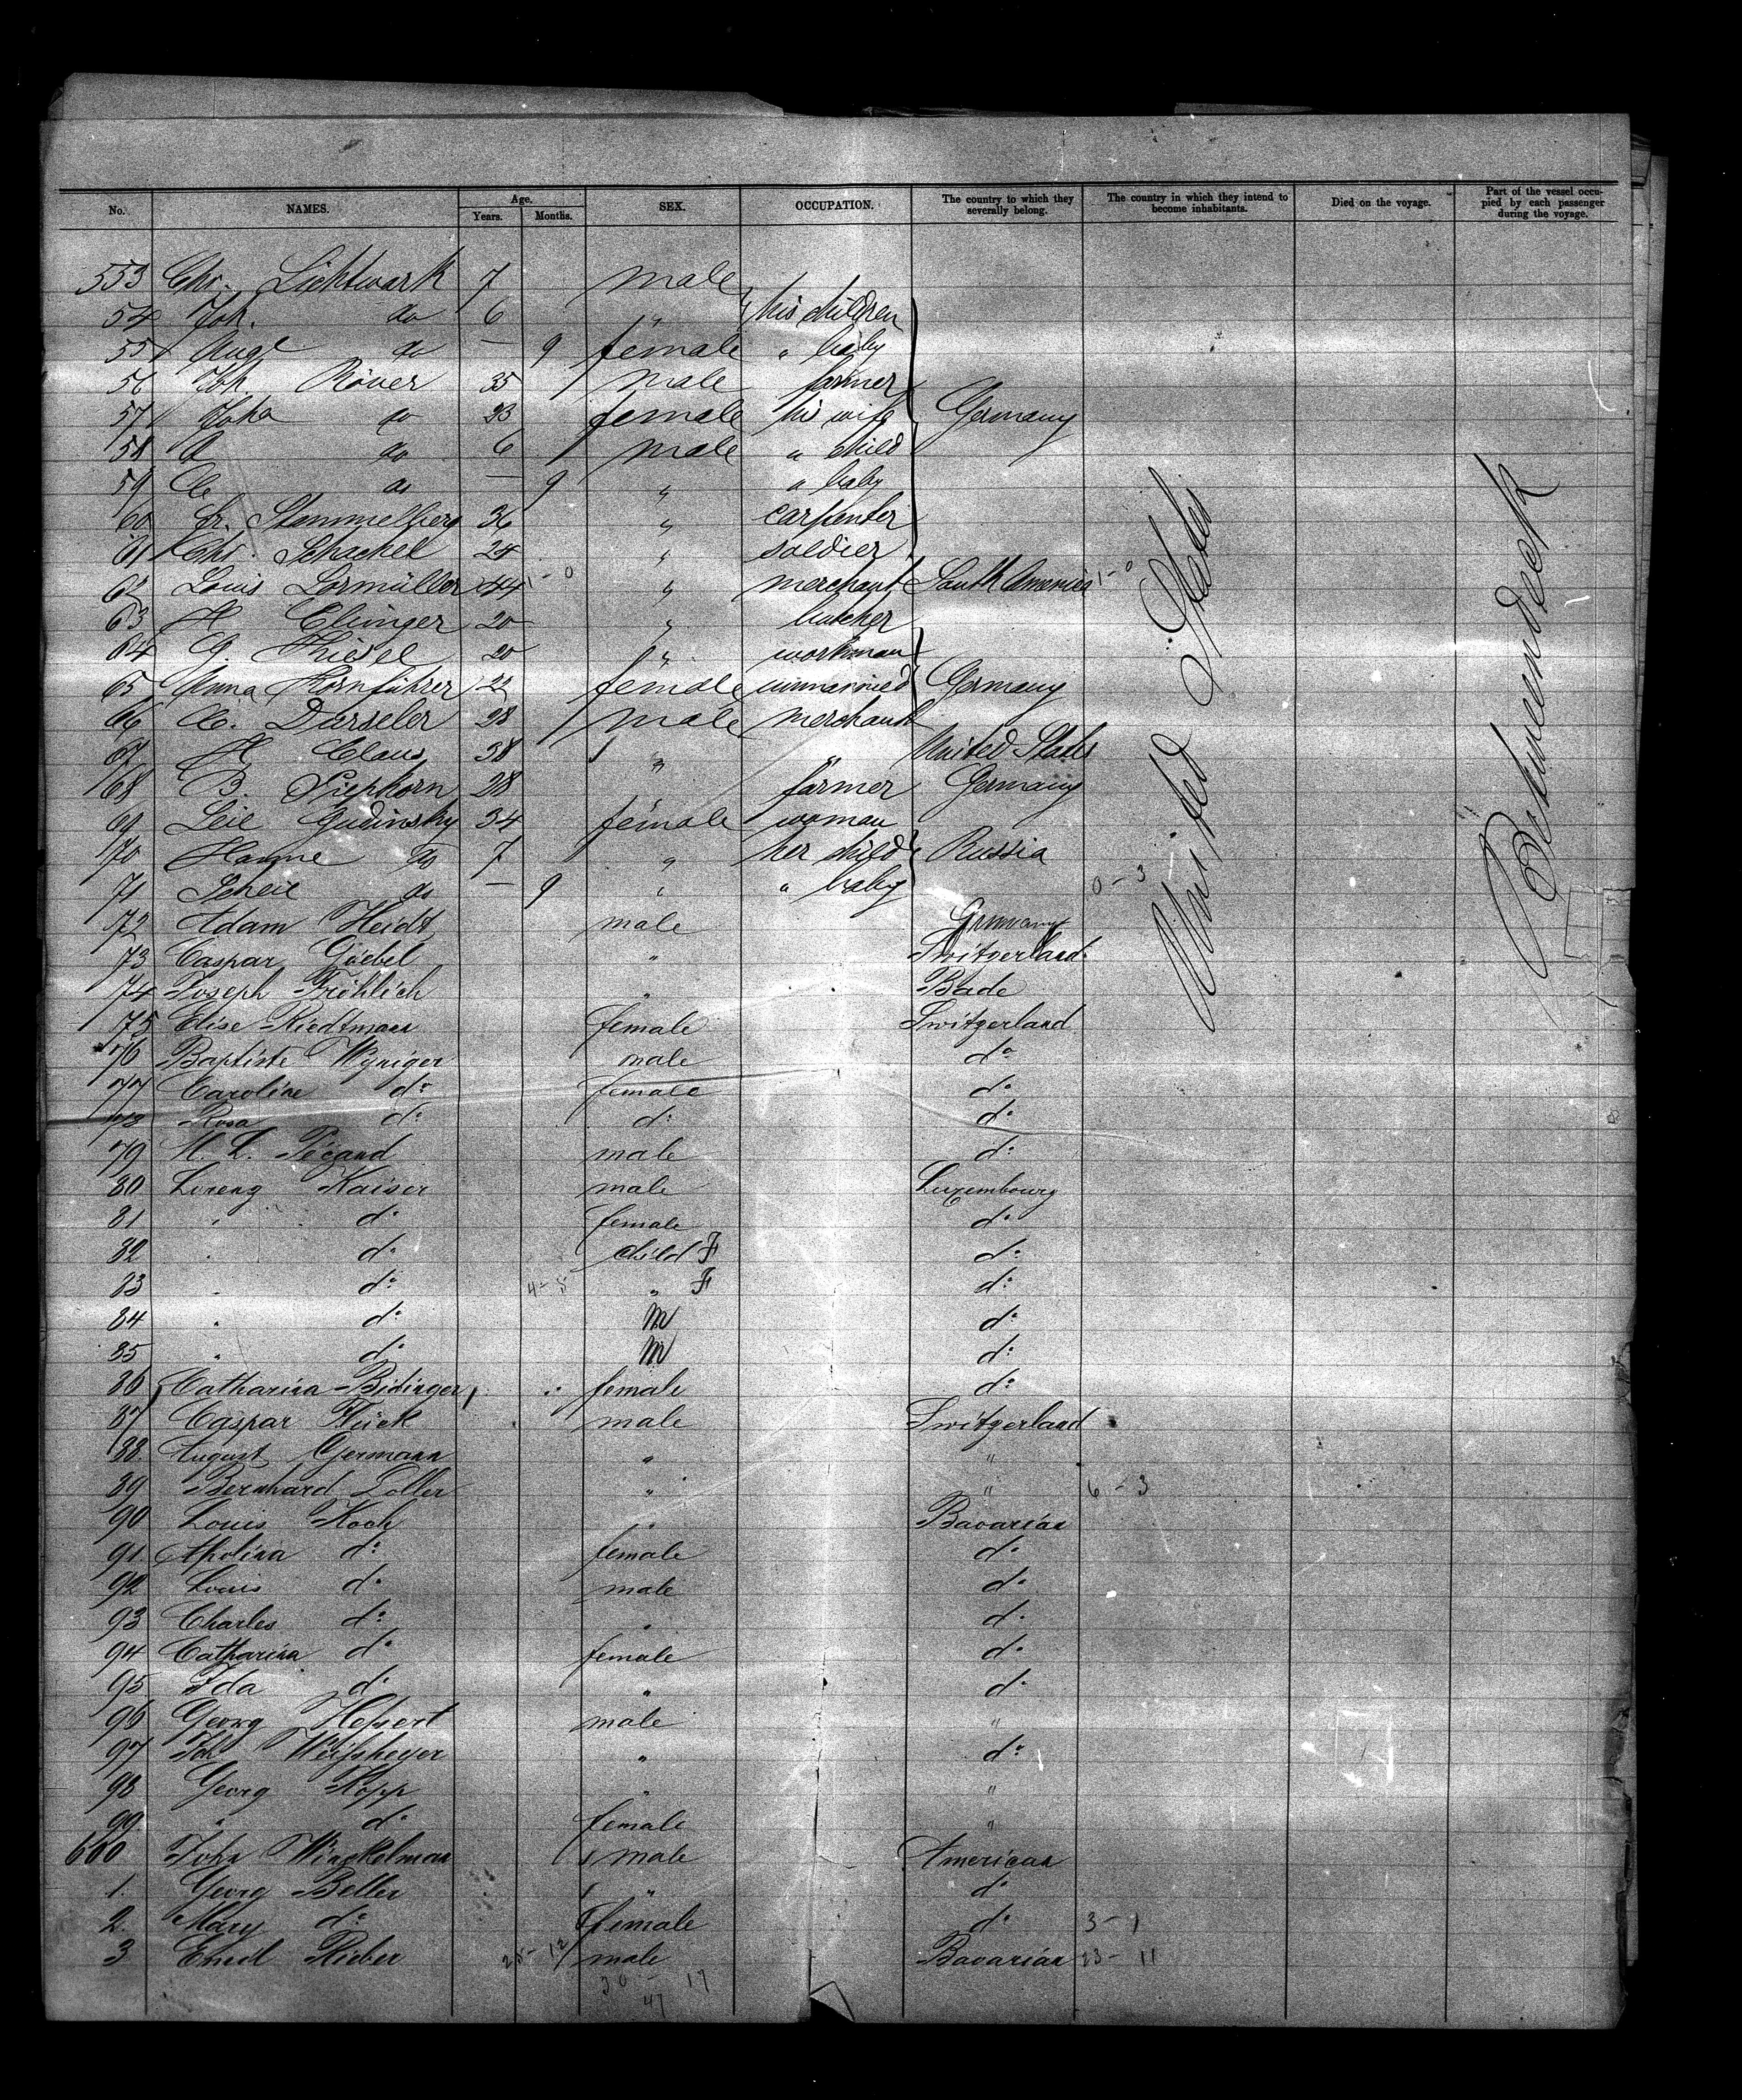 No. NAMES. Age. Years. Months. SEX. OCCUPATION. The country to which they severally belong. The country in which they intend to become inhabitants. Died on the voyage. Part of the vessel occupied by each passenger during the voyage.
553 Chr. Lichtwark 7 male
54 Joh. do 6 " his children
55 Aug. do — 9 female " baby
56 Joh Röver 35 male farmer
57 Joha do 23 female his wife Germany
58 A do 6 male " child
59 C. do — 9 " " baby
60 Fr. Stammelberg 36 " carpenter
61 Chr. Schachel 24 " soldier
62 Louis Lormüller 44 1-0 " merchant South America 1-0
63 H Elinger 20 " butcher
64 G. Thiesel 20 " workman
65 Anna Kornführer 22 female unmarried Germany
66 C. Darseler 28 male merchant
67 H Claus 38 " " United States
68 B. Siephorn 28 farmer Germany
69 Leie Gudinsky 34 female woman
70 Hanne do 7 " her child Russia
71 Scheie do — 9 " " baby 0-3
United States
Between deck
72 Adam Heidt male Germany
73 Caspar Goebel " Switzerland
74 Joseph Fröhlich " Bade
75 Elise Riedtmann female Switzerland
76 Baptiste Wyniger male do
77 Caroline do female do
78 Rosa do do do
79 M. L. Pégand male do
80 Lorenz Kaiser male Luxembourg
81 " do female do
82 " do child F do
83 " do 4-5 " F do
84 " do M do
85 " do M do
86 Catharina Bidinger female do
87 Caspar Flück male Switzerland
88 August Germann " "
89 Bernhard Doller " " 6-3
90 Louis Koch " Bavarian
91 Apolina do female do
92 Louis do male do
93 Charles do " do
94 Catharina do female do
95 Ida do " do
96 Georg Hepert male "
97 Joh Weissheyer " do
98 Georg Kopp " "
99 " do female "
600 John Winckelman male American
1. Georg Beller " do
2. Mary do female do 3-1
3 Emil Rieber 25-12 male Bavarian 23-11
30-17
47